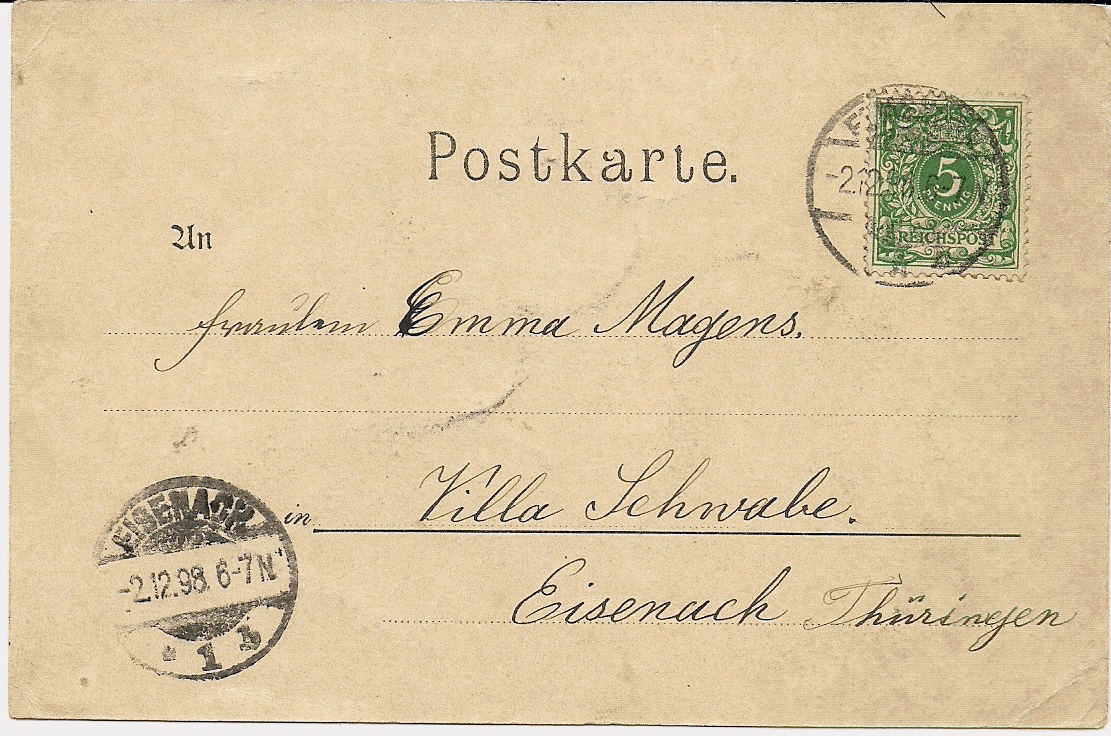 Postkarte.
5
PFENNIG
REICHSPOST
An
Fräulein Emma Magens.
in Villa Schwabe.
Eisenach Thüringen
EISENACH
-2.12.98. 6-7N
* 1 b